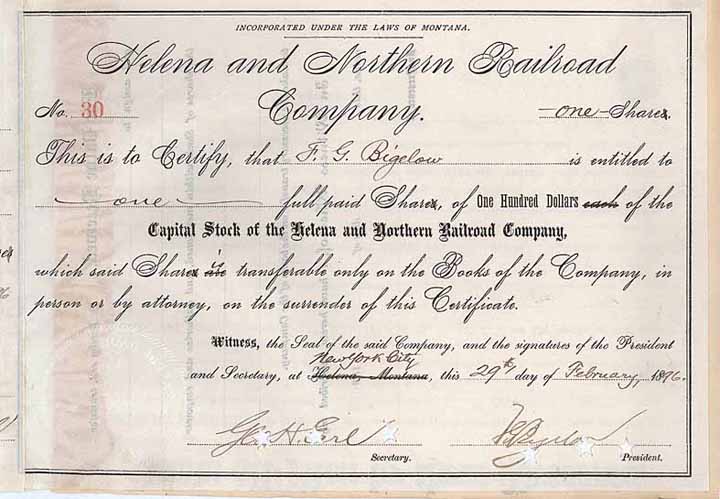 INCORPORATED UNDER THE LAWS OF MONTANA.
Helena and Northern Railroad
No. 30 Company. one Share
This is to Certify, that F. G. Bigelow is entitled to
one full paid Share, of One Hundred Dollars each of the
Capital Stock of the Helena and Northern Railroad Company,
which said Share is transferable only on the Books of the Company, in
person or by attorney, on the surrender of this Certificate.
Witness, the Seal of the said Company, and the signatures of the President
New York City
and Secretary, at Helena, Montana, this 29th day of February, 1896.
Geo. H. Earl F. G. Bigelow
Secretary. President.